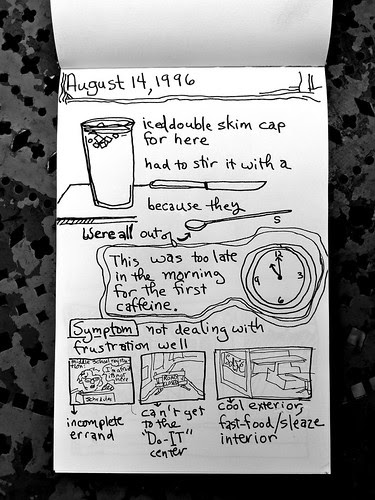 August 14, 1996
iced double skim cap
for here
had to stir it with a
because they
were all out of
s
This was too late
in the morning
for the first
caffeine.
12
3
6
9
Symptom not dealing with
frustration well
Middle School
I'm afraid
it's not
here
Schedules
Road
incomplete
errand
can't get
to the
"Do-IT"
center
cool exterior,
fast-food/sleaze
interior